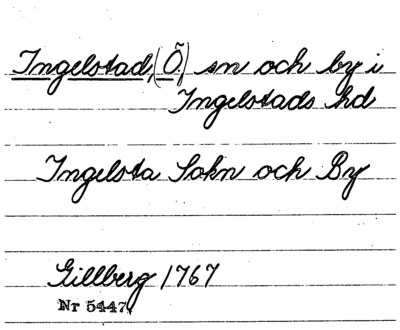 Ingelstad, (Ö) sn och by i
Ingelstads hd
Ingelsta Sokn och By
Gillberg 1767
Nr 5447,